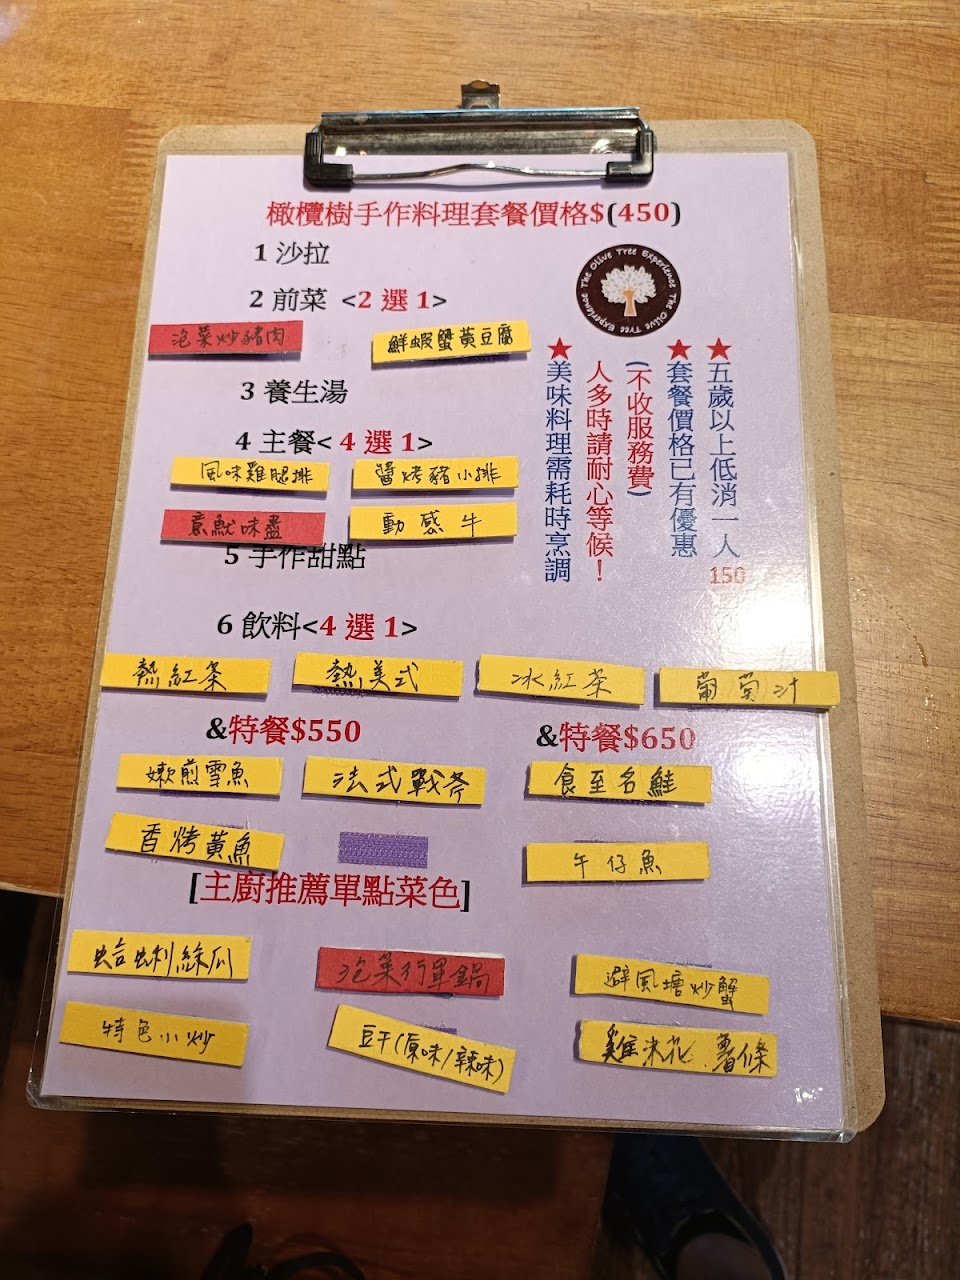 橄欖樹手作料理套餐價格$(450)
1 沙拉
2 前菜 <2 選 1>
泡菜炒豬肉
鮮蝦蟹黃豆腐
3 養生湯
4 主餐< 4 選 1>
風味雞腿排
醬烤豬小排
意魷味盡
動感牛
5 手作甜點
6 飲料<4 選 1>
熱紅茶
熱美式
冰紅茶
葡萄汁
The Olive Tree Experience The Olive Tree Experience
★五歲以上低消一人
150
★套餐價格已有優惠
(不收服務費)
人多時請耐心等候！
★美味料理需耗時烹調
&特餐$550
嫩煎雪魚
法式戰斧
香烤黃魚
&特餐$650
食至名鮭
午仔魚
[主廚推薦單點菜色]
蛤蜊絲瓜
泡菜行軍鍋
避風塘炒蟹
特色小炒
豆干(原味/辣味)
雞米花.薯條